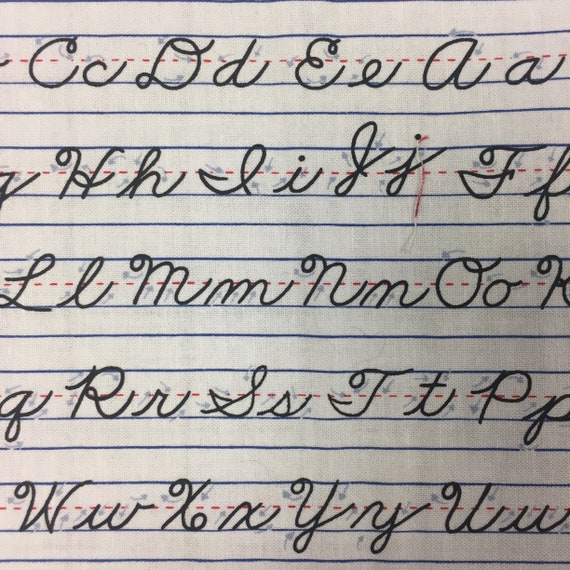 Cc Dd Ee Aa
g Hh Ii Jj Ff
Ll Mm Nn Oo K
q Rr Ss Tt Pp
Ww Xx Yy Uu